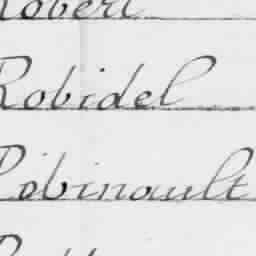 Robert
Robidel
Robinault